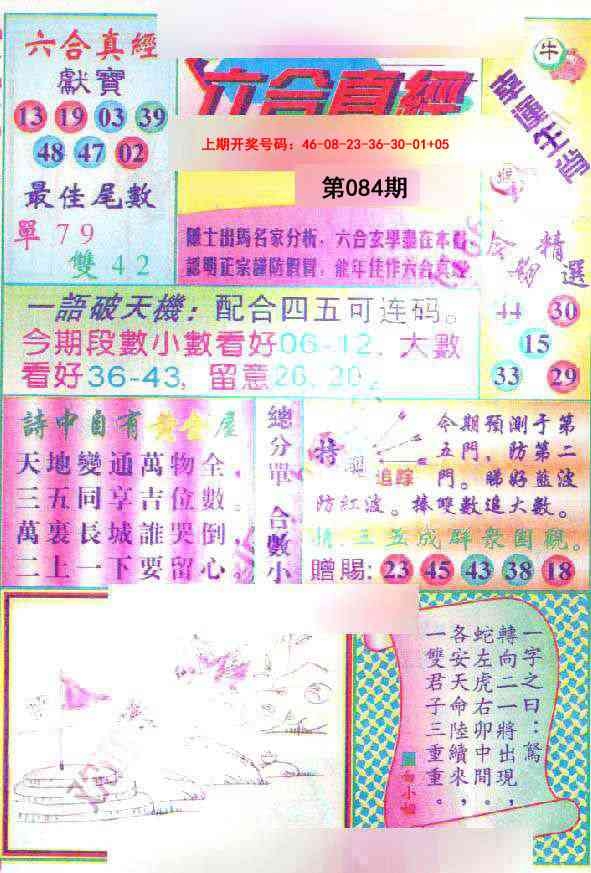 六合真經
獻寶
13 19 03 39
48 47 02
最佳尾數
單79
雙42
六合真經
上期开奖号码：46-08-23-36-30-01+05
第084期
隱士出馬名家分析，六合玄學盡在本
認明正宗謹防假冒，能年佳作六合真經
牛
精選
44 30
15
33 29
一語破天機：配合四五可连码。
今期段數小數看好06-12，大數
看好36-43，留意26,20。
詩中自有黃金屋
天地變通萬物全，
三五同享吉位數。
萬裏長城誰哭倒，
二上一下要留心。
總分單、合數小
特
追踪
今期預測于第
五門，防第二
門。睇好藍波
防紅波。捧雙數追大數。
猜：三五成群衆圍觀。
贈賜：23 45 43 38 18
一字之曰：駕
轉向二一將出現，
蛇左虎右卯中間。
各安天命陸續來，
一雙君子三重重。